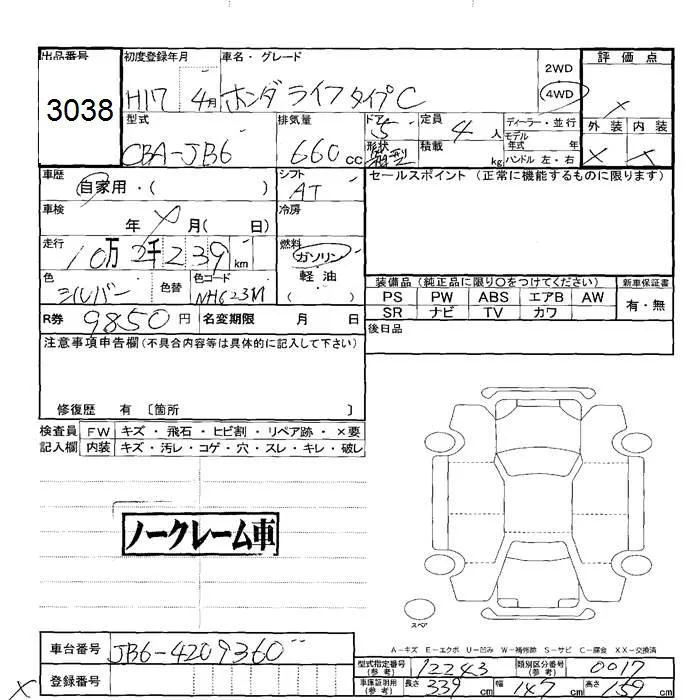 出品番号 初度登録年月 車名・グレード 2WD 評価点
3038 H17 4月 ホンダ ライフ タイプC 4WD ×
型式 排気量 ドア 5 定員 4人 ディーラー・並行 外装 内装
CBA-JB6 660cc 形状 箱型 積載 kg モデル年式 年 × ×
ハンドル 左・右
車歴 自家用・( ) シフト AT セールスポイント (正常に機能するものに限ります)
車検 年 × 月( 日) 冷房
走行 10万2千239km 燃料 ガソリン
軽油
色 シルバー 色替 色コード NH623M ( ) 装備品 (純正品に限り○をつけてください) 新車保証書
PS PW ABS エアB AW 有・無
R券 9850円 名変期限 月 日 SR ナビ TV カワ
注意事項申告欄(不具合内容等は具体的に記入して下さい) 後日品
修復歴 有 〔箇所 〕
検査員 FW キズ・飛石・ヒビ割・リペア跡・×要
記入欄 内装 キズ・汚レ・コゲ・穴・スレ・キレ・破レ
ノークレーム車
スペア
A-キズ E-エクボ U-凹み W-補修跡 S-サビ C-腐食 XX-交換済
車台番号 JB6-4209360 型式指定番号(参考) 12243 類別区分番号(参考) 0017
× 登録番号 車庫証明用(参考) 長さ 339cm 幅 147cm 高さ 159cm